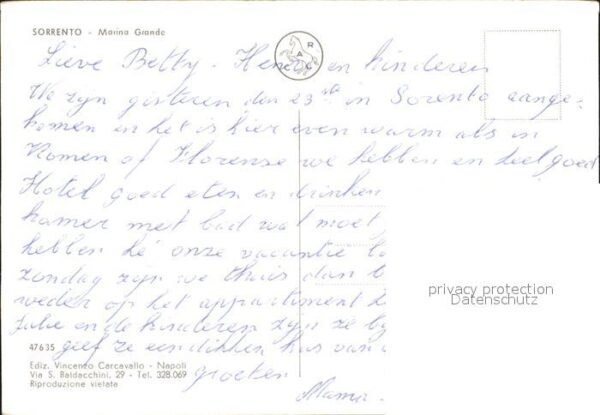 SORRENTO - Marina Grande
RAG
Lieve Betty - Henri en kinderen
We zijn gisteren den 23ste in Sorento aange-
komen en het is hier even warm als in
Romen of Florense we hebben en heel goed
Hotel goed eten en drinken
kamer met bad wat moet
hebben hé onze vacantie
zondag zijn we thuis dan
weder op het appartiment
Julie en de kinderen zijn ze
geef ze een dikken kus van
groeten
Mama
privacy protection
Datenschutz
47635
Ediz. Vincenzo Carcavallo - Napoli
Via S. Baldacchini, 29 - Tel. 328.069
Riproduzione vietata